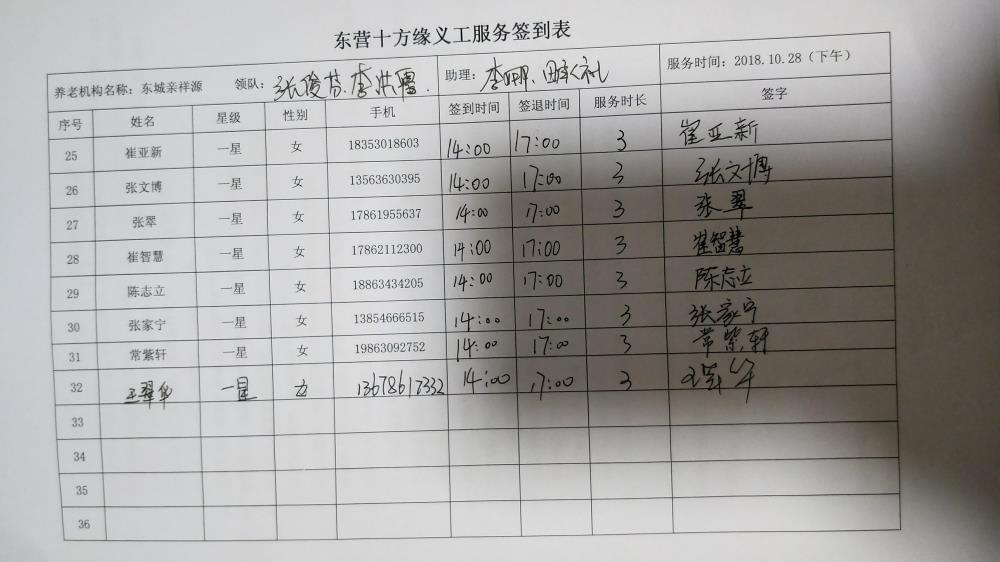 东营十方缘义工服务签到表
养老机构名称：东城亲祥源 领队：张俊芬.李 助理：李娜. 服务时间：2018.10.28（下午）
序号 姓名 星级 性别 手机 签到时间 签退时间 服务时长 签字
25 崔亚新 一星 女 18353018603 14:00 17:00 3 崔亚新
26 张文博 一星 女 13563630395 14:00 17:00 3 张文博
27 张翠 一星 女 17861955637 14:00 17:00 3 张翠
28 崔智慧 一星 女 17862112300 14:00 17:00 3 崔智慧
29 陈志立 一星 女 18863434205 14:00 17:00 3 陈志立
30 张家宁 一星 女 13854666515 14:00 17:00 3 张家宁
31 常紫轩 一星 女 19863092752 14:00 17:00 3 常紫轩
32 王翠华 一星 女 13678617332 14:00 17:00 3
33
34
35
36